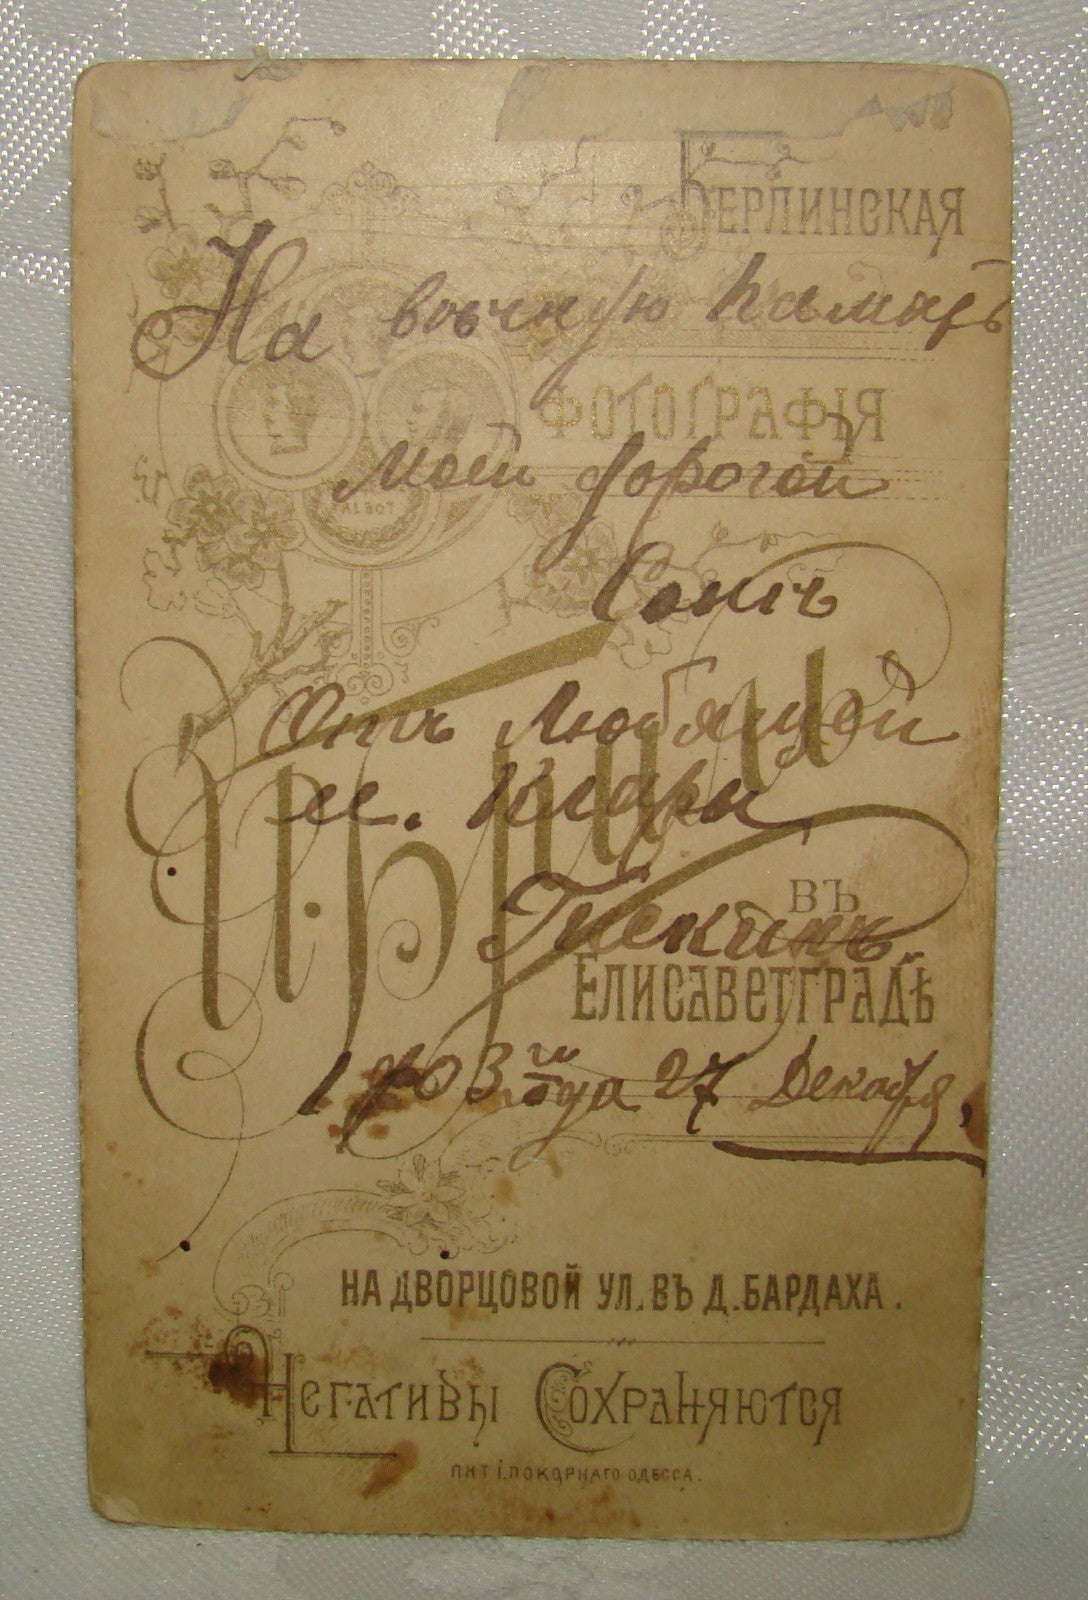 Берлинская
На вѣчную память
Фотографія
Моей дорогой
ALBOT
Сонѣ
Отъ Любящей
Клары
въ
Елисаветградѣ
1903 года 27 Декабря,
НА ДВОРЦОВОЙ УЛ. ВЪ Д. БАРДАХА.
Негативы Сохраняются
ЛИТ. І. ПОКОРНАГО ОДЕССА.